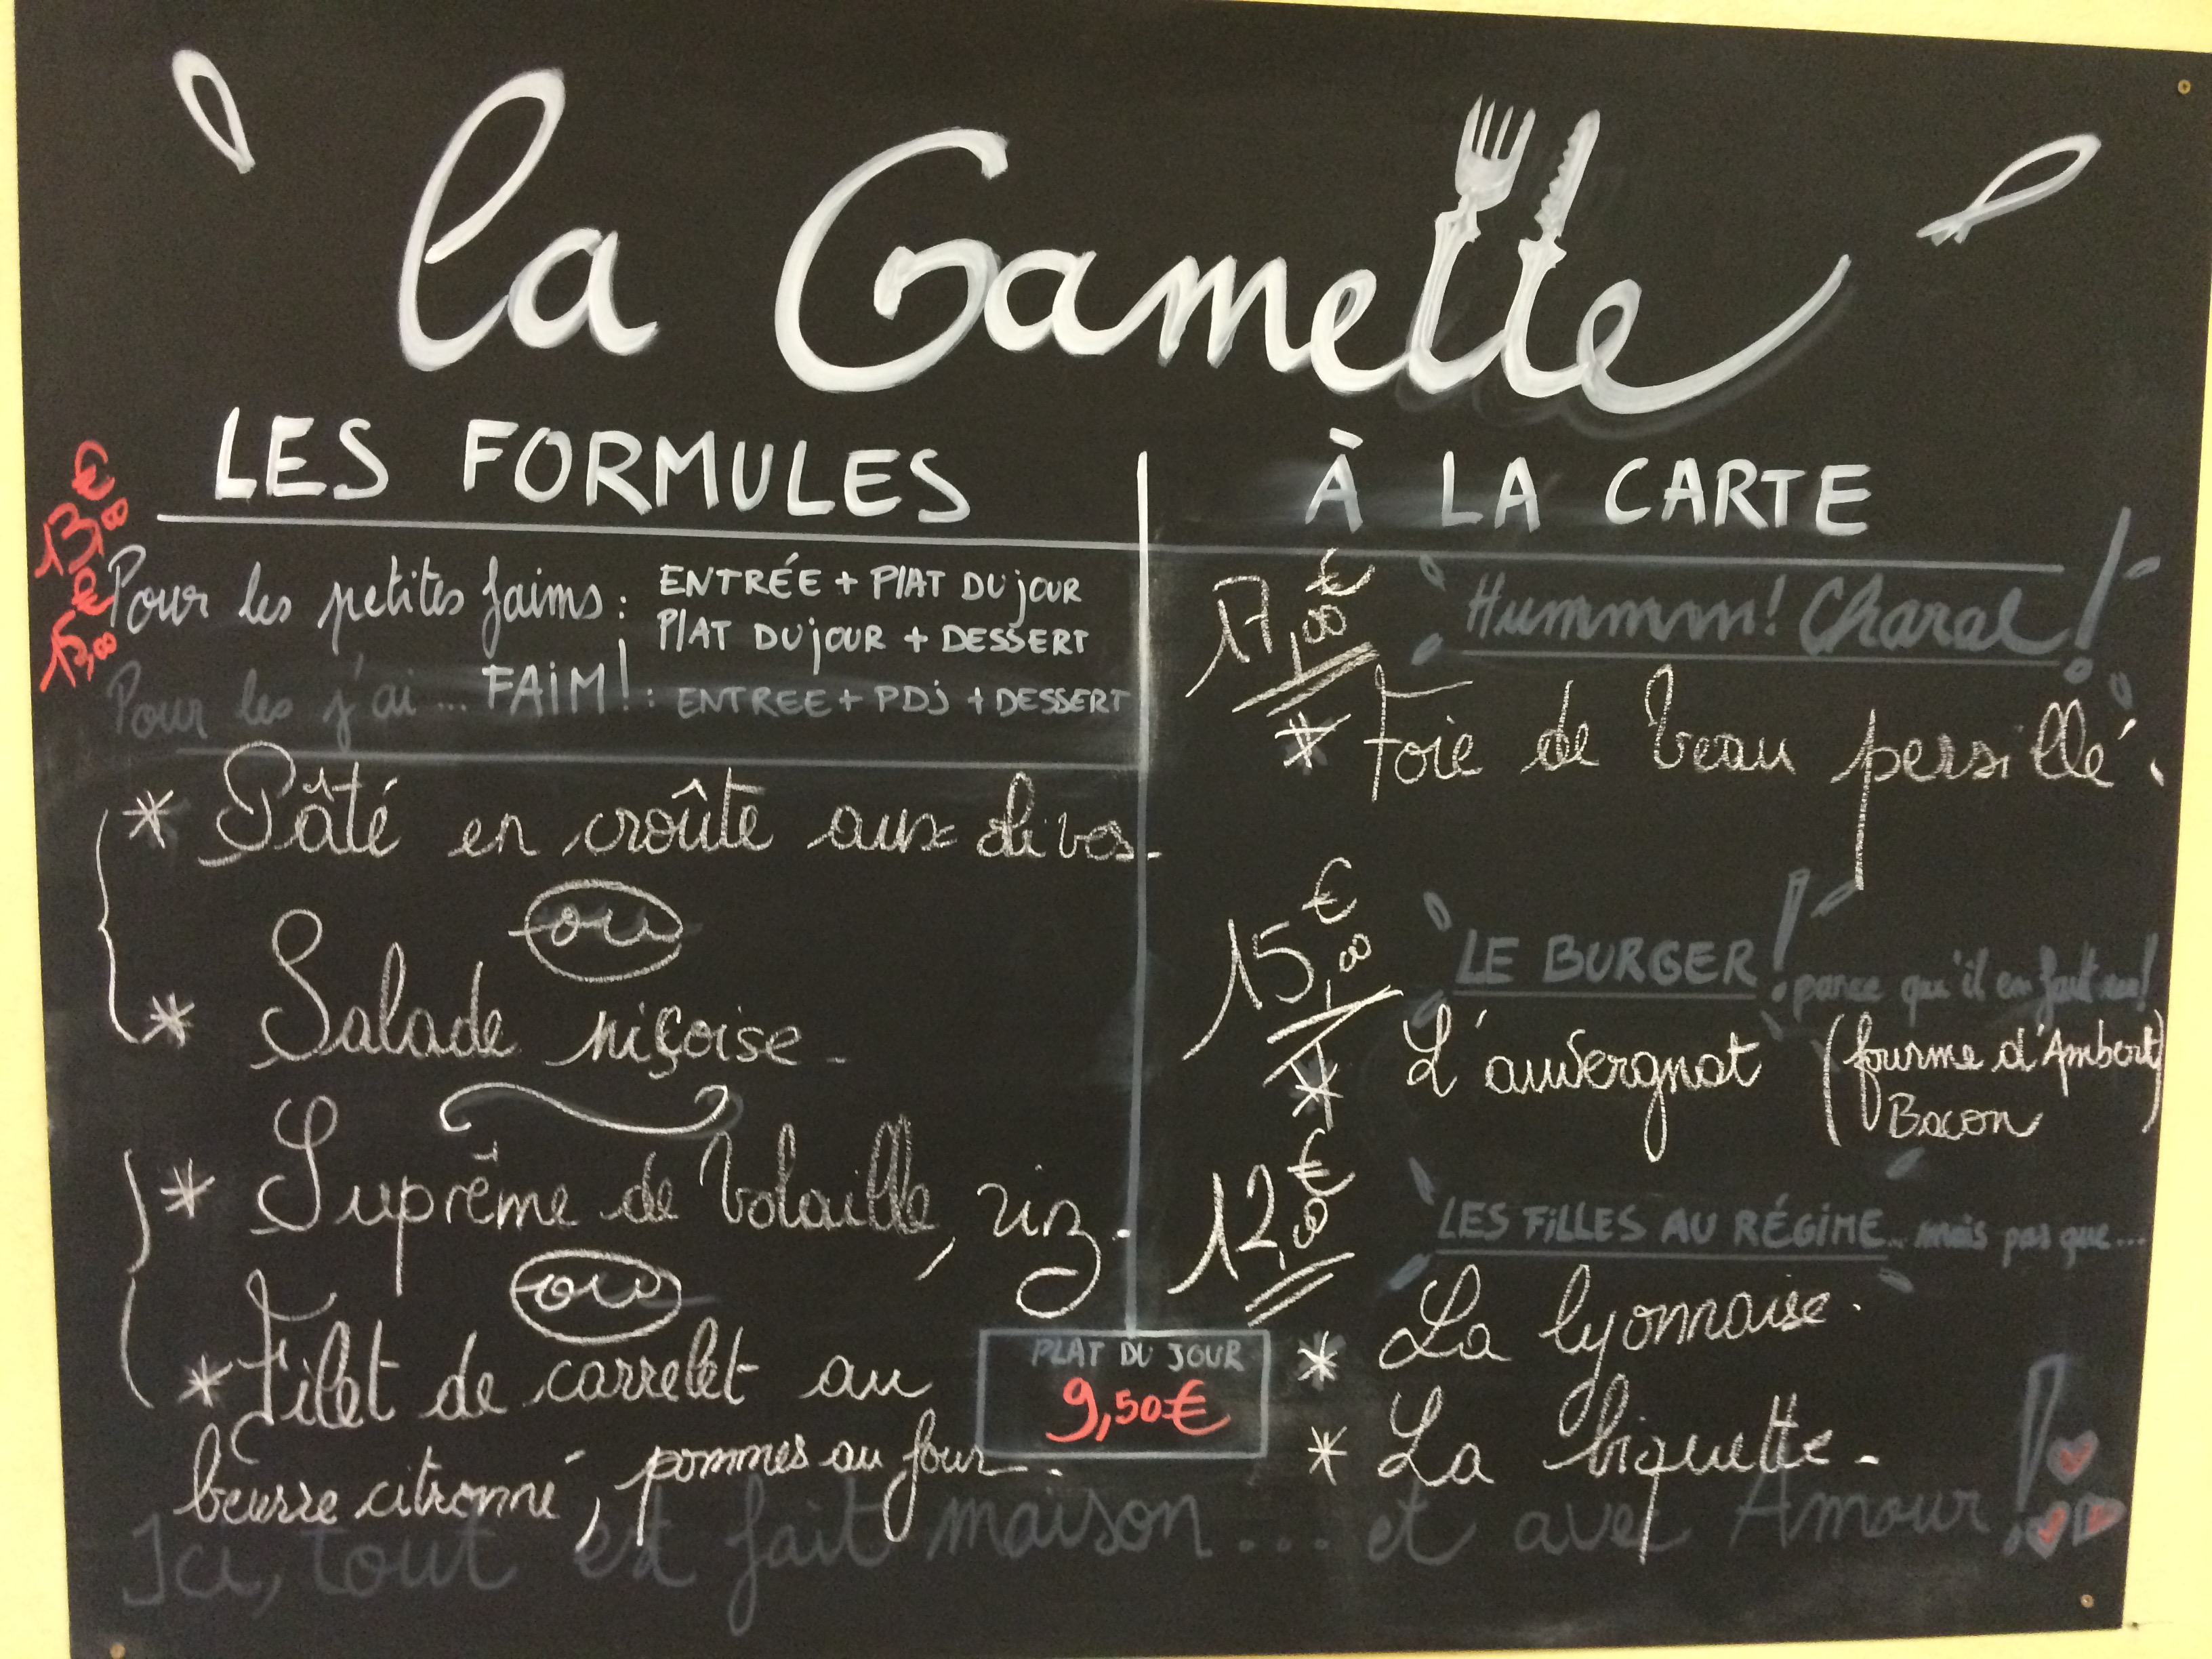 la Gamelle
LES FORMULES
13,00 €
Pour les petites faims : ENTRÉE + PLAT DU jOUR
PLAT DU jOUR + DESSERT
15,00 €
Pour les j'ai... FAIM ! : ENTREE + PDj + DESSERT
* Pâté en croûte aux olives.
ou
* Salade niçoise.
* Suprême de volaille, riz.
ou
* Filet de carrelet au
beurre citronné, pommes au four.
PLAT DU JOUR
9,50€
À LA CARTE
17,00 €
Hummmm! Charal !
* Foie de veau persillé.
15,00 €
LE BURGER ! parce qu'il en faut un!
* L'auvergnat (fourme d'Ambert
Bacon
12,00 €
LES FILLES AU RÉGIME... mais pas que...
* La lyonnaise.
* La biquette.
Ici, tout est fait maison... et avec Amour !